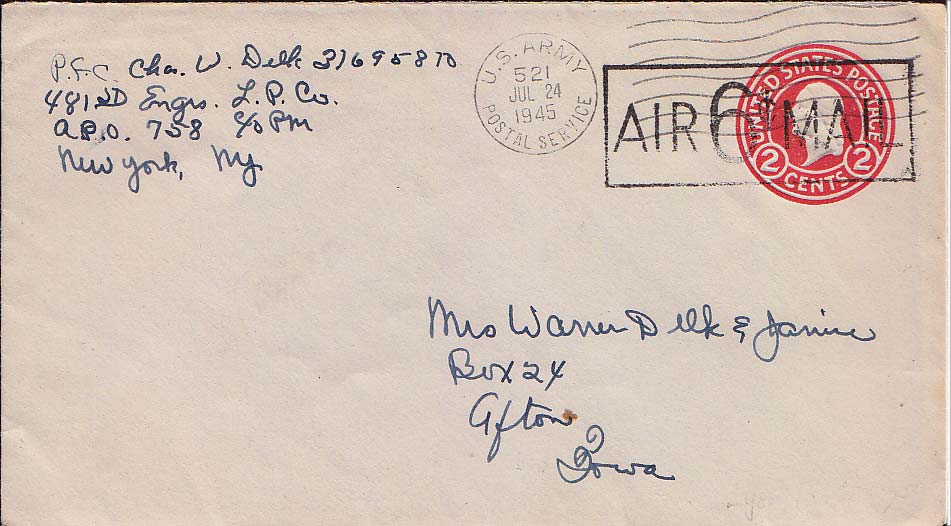 P.F.C. Chas. W. Delk 37695870
481 2D Engrs. L.P. Co.
A.P.O. 758 c/o PM
New York, NY
U.S. ARMY
521
JUL 24
1945
POSTAL SERVICE
AIR 6¢ MAIL
UNITED STATES POSTAGE
2 CENTS 2
Mrs Warren Delk & Janice
Box 24
Afton
Iowa